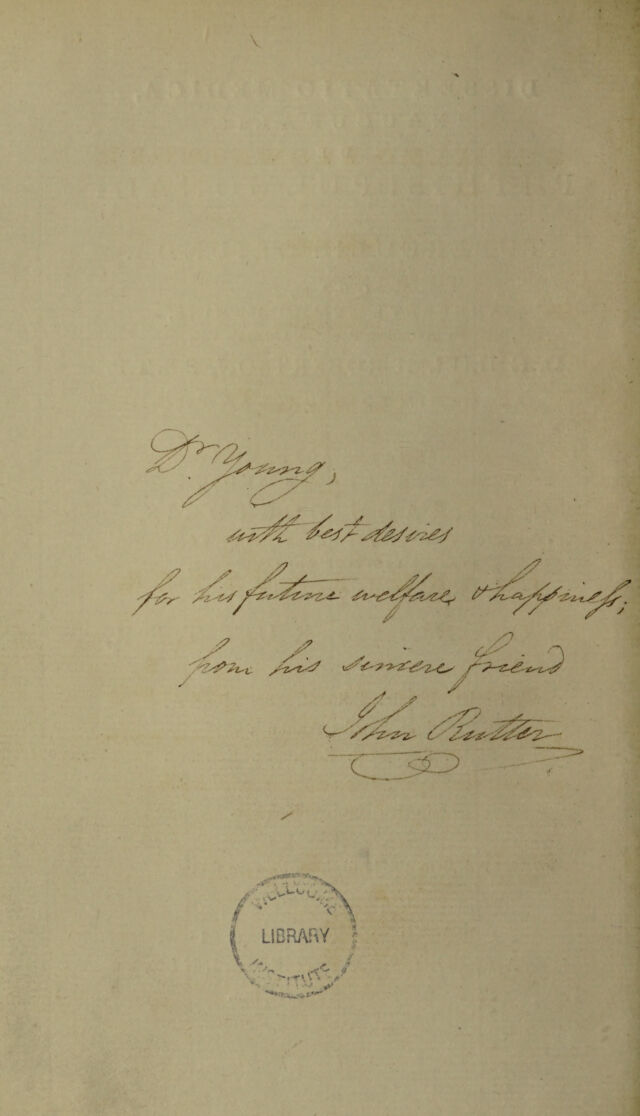 Dr. Young,
with best desires
for his future welfare & happineſs;
from his sincere friend
John Rutter
WELLCOME
LIBRARY
INSTITUTE